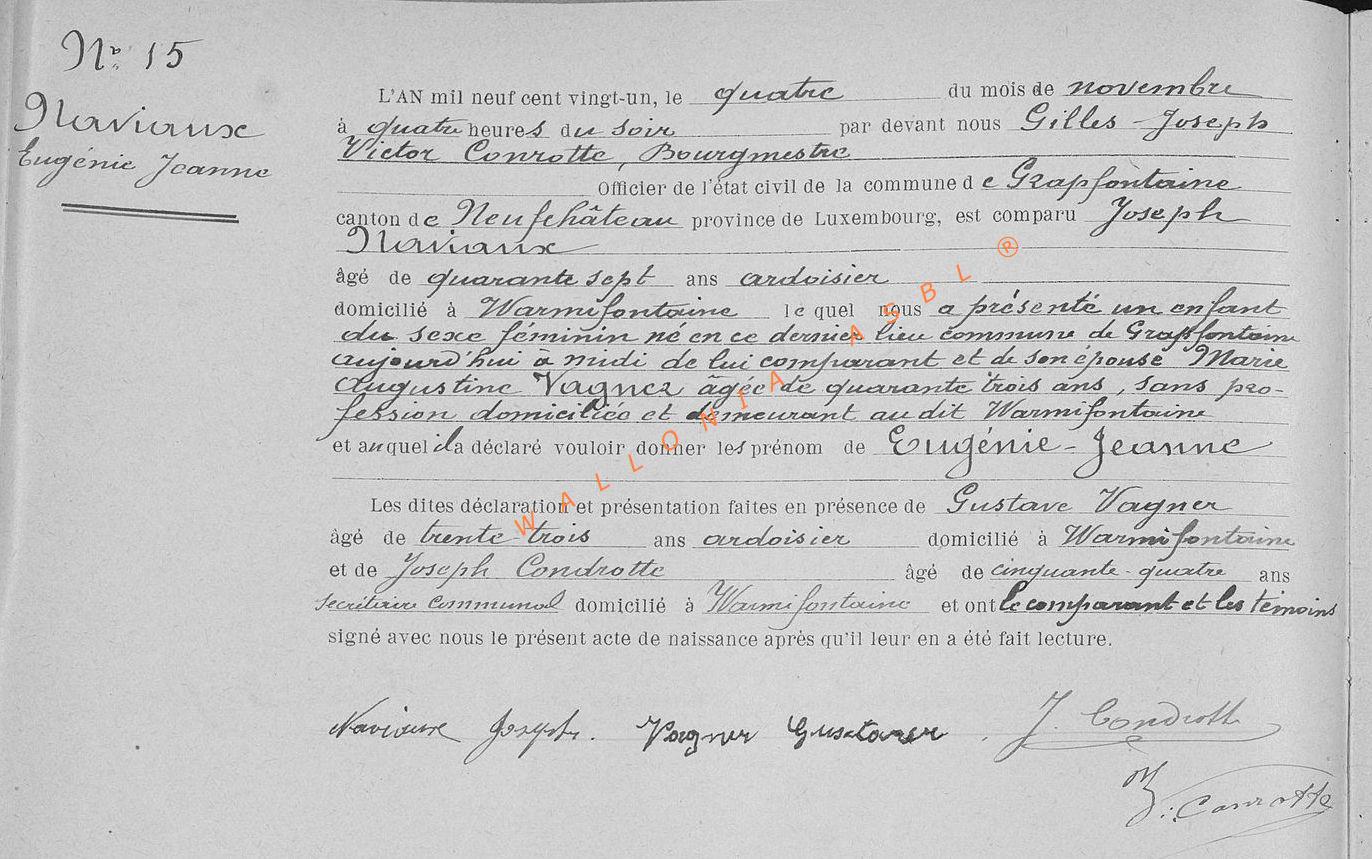 Nº 15
Naviaux
Eugénie Jeanne
L'AN mil neuf cent vingt-un, le quatre du mois de novembre
à quatre heures du soir par devant nous Gilles-Joseph
Victor Conrotte, Bourgmestre
Officier de l'état civil de la commune de Grapfontaine
canton de Neufchâteau province de Luxembourg, est comparu Joseph
Naviaux
âgé de quarante sept ans ardoisier
domicilié à Warmifontaine lequel nous a présenté un enfant
du sexe féminin né en ce dernier lieu commune de Grapfontaine
aujourd'hui à midi de lui comparant et de son épouse Marie
Augustine Vagner âgée de quarante trois ans, sans pro-
fession domiciliée et demeurant au dit Warmifontaine
et auquel il a déclaré vouloir donner les prénom de Eugénie-Jeanne
Les dites déclaration et présentation faites en présence de Gustave Vagner
âgé de trente-trois ans ardoisier domicilié à Warmifontaine
et de Joseph Condrotte âgé de cinquante-quatre ans
secrétaire communal domicilié à Warmifontaine et ont le comparant et les témoins
signé avec nous le présent acte de naissance après qu'il leur en a été fait lecture.
Naviaux Joseph. Vagner Gustave J. Condrotte
V. Conrotte
WALLONIA ASBL ®